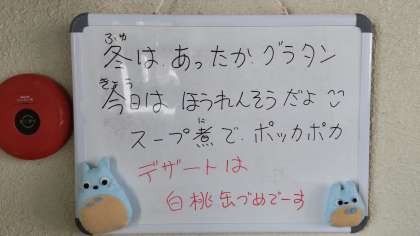 ふゆ
冬は、あったか、グラタン
きょう
今日は ほうれんそうだよ
に
スープ煮で、ポッカポカ
デザートは
白桃缶づめでーす